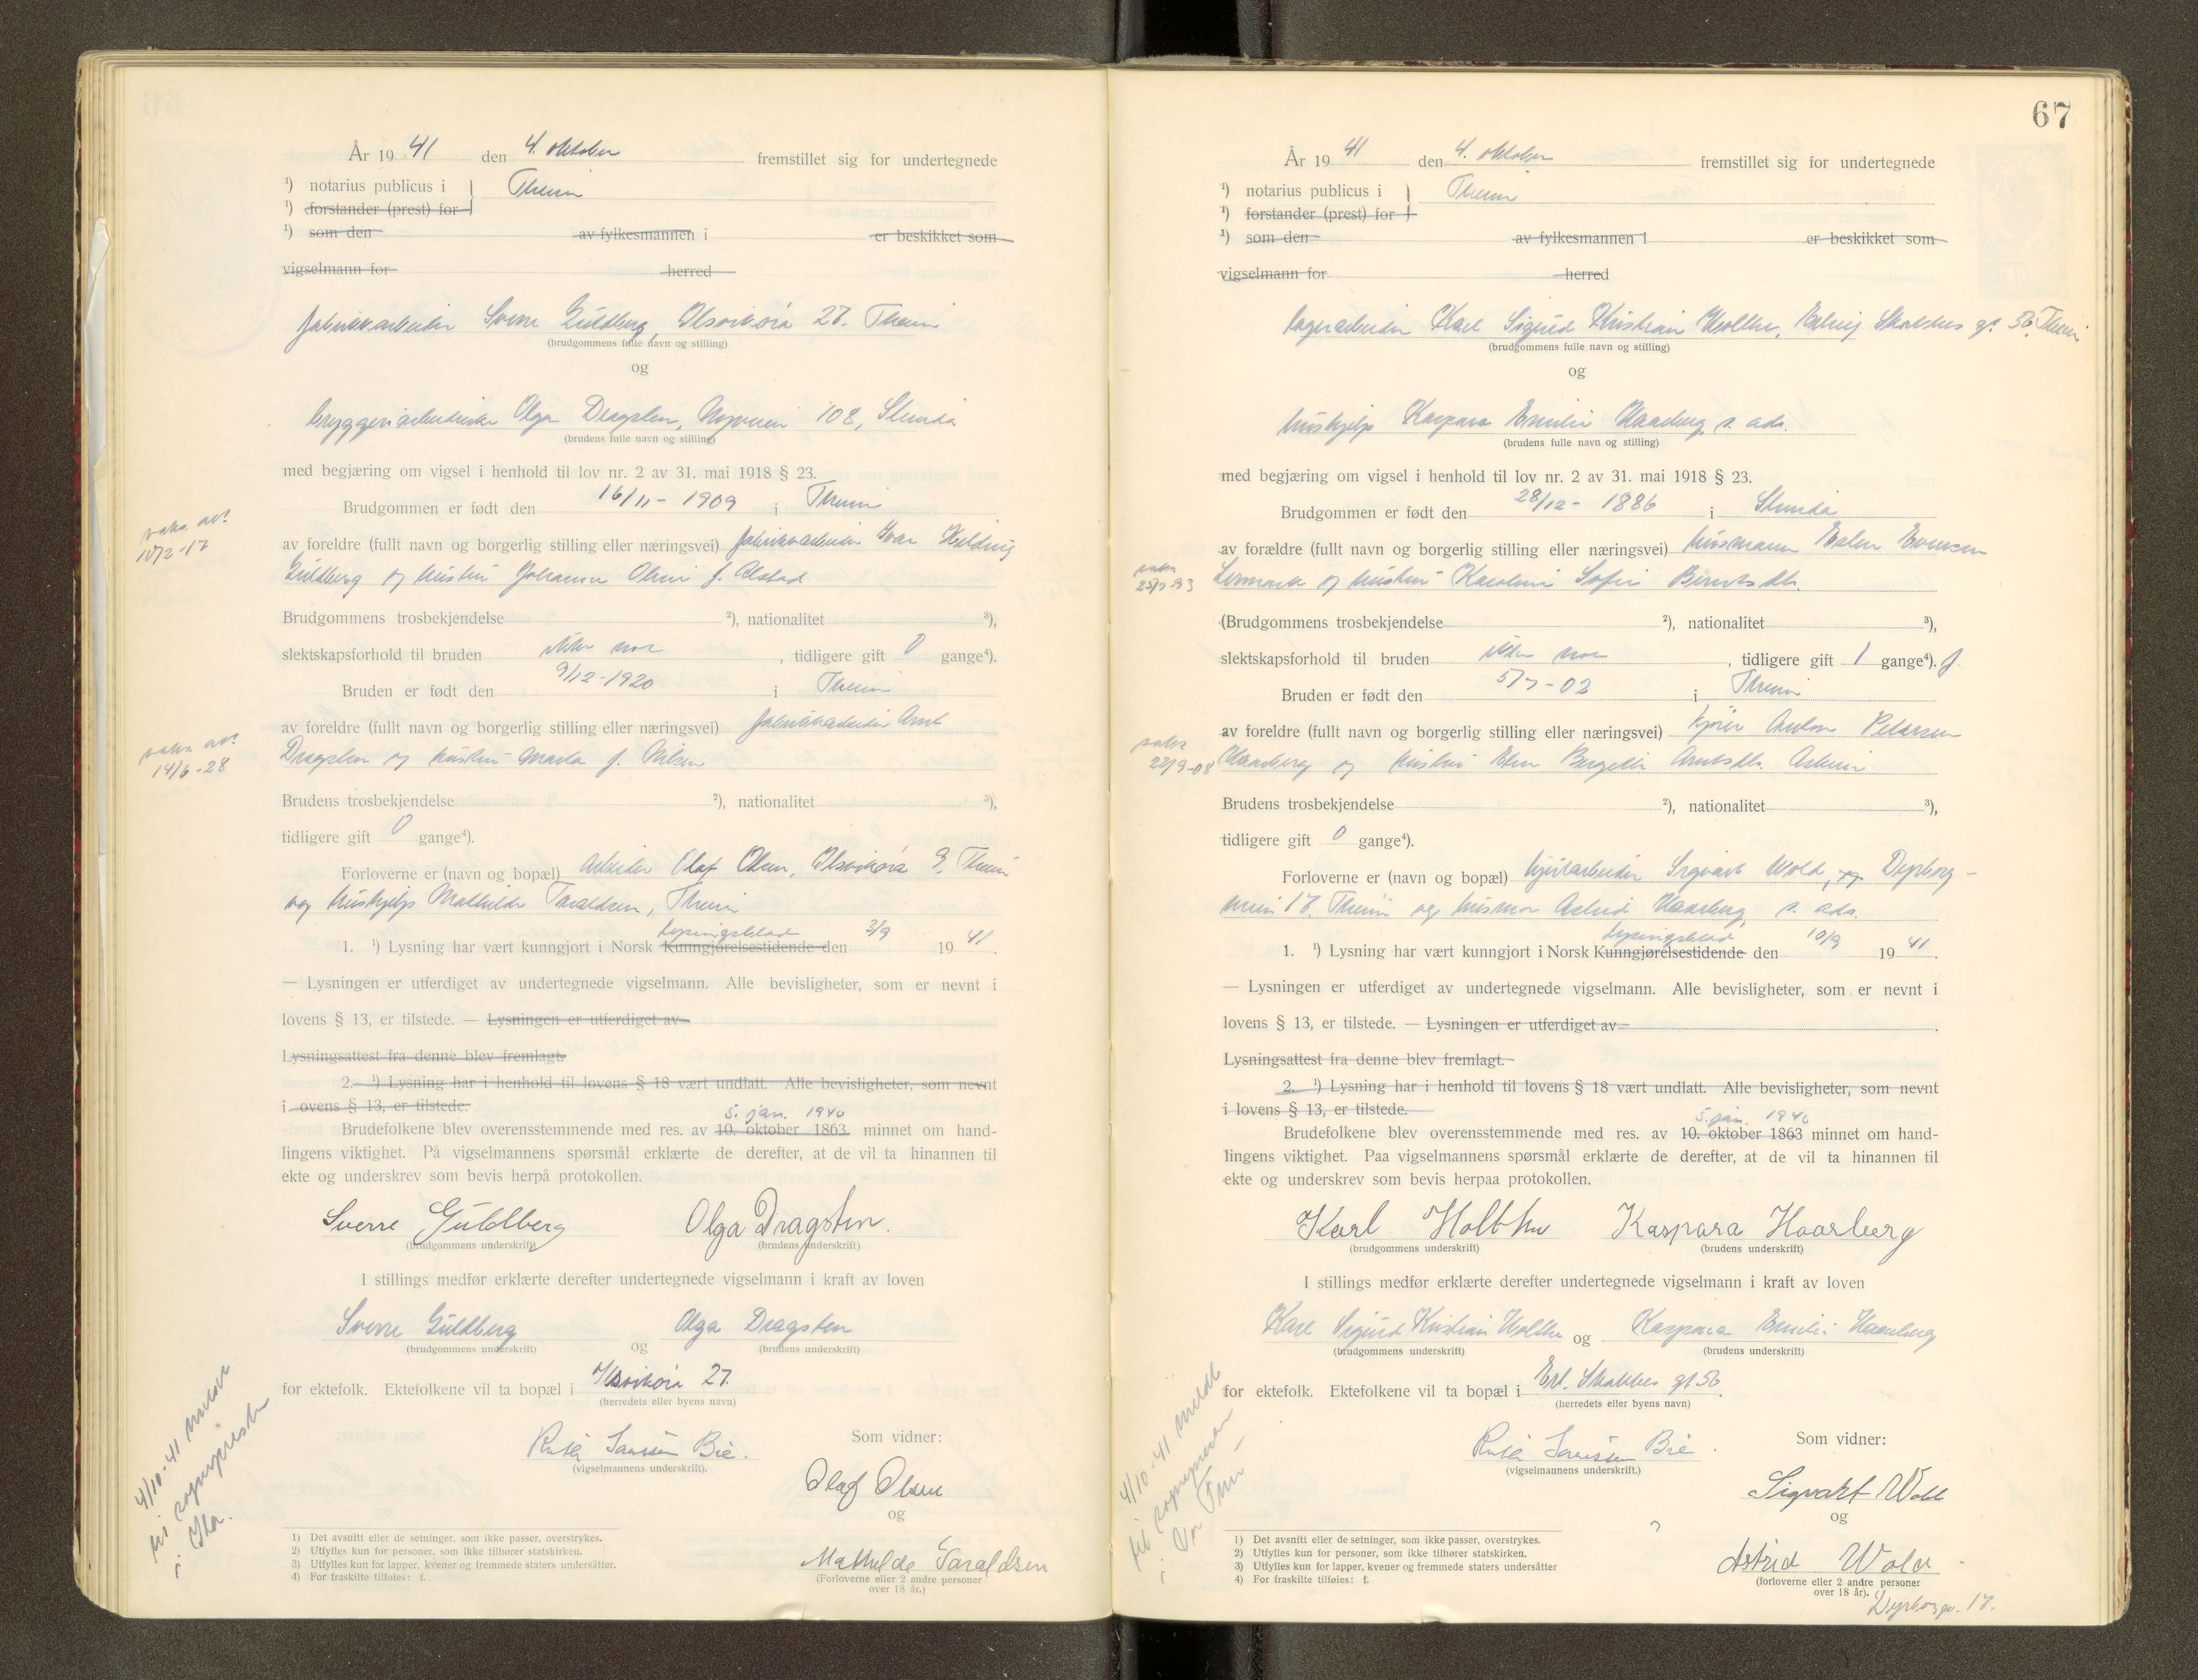 År 19 41 den 4. oktober fremstillet sig for undertegnede
¹) notarius publicus i } Th.heim
¹) forstander (prest) for
¹) som den av fylkesmannen i er beskikket som
vigselmann for herred
fabrikkarbeider Sverre Guldberg, Ilsvikøra 27. Th.heim
(brudgommens fulle navn og stilling)
og
bryggeriarbeiderske Olga Dragsten, Nyveien 108, Strinda
(brudens fulle navn og stilling)
med begjæring om vigsel i henhold til lov nr. 2 av 31. mai 1918 § 23.
Brudgommen er født den 16/11- 1909 i Th.heim
vaks. att.
10/2-17
av foreldre (fullt navn og borgerlig stilling eller næringsvei) fabrikkarbeider Ivar
Guldberg og hustru Johanna Oline f. Alstad
Brudgommens trosbekjendelse ²), nationalitet ³),
slektskapsforhold til bruden ikke noe , tidligere gift 0 gange⁴).
Bruden er født den 9/12-1920 i Th.heim
av foreldre (fullt navn og borgerlig stilling eller næringsvei) fabrikkarbeider Arnt
vaks. att.
14/6-28
Dragsten og hustru Marta f. Nilsen
Brudens trosbekjendelse ²), nationalitet ³),
tidligere gift 0 gange⁴).
Forloverne er (navn og bopæl) arbeider Olaf Olsen, Ilsvikøra 9, Th.heim
og hushjelp Mathilde Taraldsen, Th.heim
lysingsblad
1. ¹) Lysning har vært kunngjort i Norsk Kunngjørelsestidende den 3/9 19 41.
— Lysningen er utferdiget av undertegnede vigselmann. Alle bevisligheter, som er nevnt i
lovens § 13, er tilstede. — Lysningen er utferdiget av
Lysningsattest fra denne blev fremlagt.
2. ¹) Lysning har i henhold til lovens § 18 vært undlatt. Alle bevisligheter, som nevnt
i ovens § 13, er tilstede.
5. jan. 1940
Brudefolkene blev overensstemmende med res. av 10. oktober 1863 minnet om hand-
lingens viktighet. På vigselmannens spørsmål erklærte de derefter, at de vil ta hinannen til
ekte og underskrev som bevis herpå protokollen.
Sverre Guldberg Olga Dragsten.
(brudgommens underskrift) (brudens underskrift)
I stillings medfør erklærte derefter undertegnede vigselmann i kraft av loven
Sverre Guldberg og Olga Dragsten
(brudgommens underskrift) (brudens underskrift)
for ektefolk. Ektefolkene vil ta bopæl i Ilsvikøra 27.
(herredets eller byens navn)
Bie.
(vigselmannens underskrift).
Som vidner:
Olaf Olsen
og
Mathilde Taraldsen
(Forloverne eller 2 andre personer
over 18 år.)
4/10-41 meldt
til sognepresten
i Ila.
1) Det avsnitt eller de setninger, som ikke passer, overstrykes.
2) Utfylles kun for personer, som ikke tilhører statskirken.
3) Utfylles kun for lapper, kvener og fremmede staters undersåtter.
4) For fraskilte tilføies: f.
67
År 19 41 den 4. oktober fremstillet sig for undertegnede
¹) notarius publicus i } Th.heim
¹) forstander (prest) for
¹) som den av fylkesmannen i er beskikket som
vigselmann for herred
lagerarbeider Karl Sigurd Kristian Holthe, Erling Skakkes gt. 56, Th.heim
(brudgommens fulle navn og stilling)
og
hushjelp Kaspara Emilie Haarberg, s. ads.
(brudens fulle navn og stilling)
med begjæring om vigsel i henhold til lov nr. 2 av 31. mai 1918 § 23.
Brudgommen er født den 28/12- 1886 i Strinda
av forældre (fullt navn og borgerlig stilling eller næringsvei) husmann Evensen
vaks.
og hustru Karoline Sofie Berntsdtr.
(Brudgommens trosbekjendelse ²), nationalitet ³),
slektskapsforhold til bruden ikke noe , tidligere gift 1 gange⁴). f.
Bruden er født den 5/7-02 i Th.heim
av foreldre (fullt navn og borgerlig stilling eller næringsvei) kjører Anton Petersen
vaks.
22/9-08
Haarberg og hustru Elen Bergitte Arntsdtr.
Brudens trosbekjendelse ²), nationalitet ³),
tidligere gift 0 gange⁴).
Forloverne er (navn og bopæl) Sigvart Wold, Dyrborg-
veien 17. Th.heim og husmor Astrid Haarberg, s. ads.
lysingsblad
1. ¹) Lysning har vært kunngjort i Norsk Kunngjørelsestidende den 10/9 19 41.
— Lysningen er utferdiget av undertegnede vigselmann. Alle bevisligheter, som er nevnt i
lovens § 13, er tilstede. — Lysningen er utferdiget av .
Lysningsattest fra denne blev fremlagt.
2. ¹) Lysning har i henhold til lovens § 18 vært undlatt. Alle bevisligheter, som nevnt
i lovens § 13, er tilstede.
5. jan. 1940
Brudefolkene blev overensstemmende med res. av 10. oktober 1863 minnet om hand-
lingens viktighet. Paa vigselmannens spørsmål erklærte de derefter, at de vil ta hinannen til
ekte og underskrev som bevis herpaa protokollen.
Karl Holthe Kaspara Haarberg
(brudgommens underskrift) (brudens underskrift)
I stillings medfør erklærte derefter undertegnede vigselmann i kraft av loven
Karl Sigurd Kristian Holthe og Kaspara Emilie Haarberg
(brudgommens underskrift) (brudens underskrift)
for ektefolk. Ektefolkene vil ta bopæl i Erl. Skakkes gt 56.
(herredets eller byens navn)
Bie.
(vigselmannens underskrift.)
Som vidner:
Sigvart Wold
og
Astrid Wold
(forloverne eller 2 andre personer
over 18 år).
Dyrborgv. 17.
4/10-41 meldt
til sognepresten
i
1) Det avsnitt eller de setninger, som ikke passer, overstrykes.
2) Utfylles kun for personer, som ikke tilhører statskirken.
3) Utfylles kun for lapper, kvener og fremmede staters undersåtter
4) For fraskilte tilføies: f.